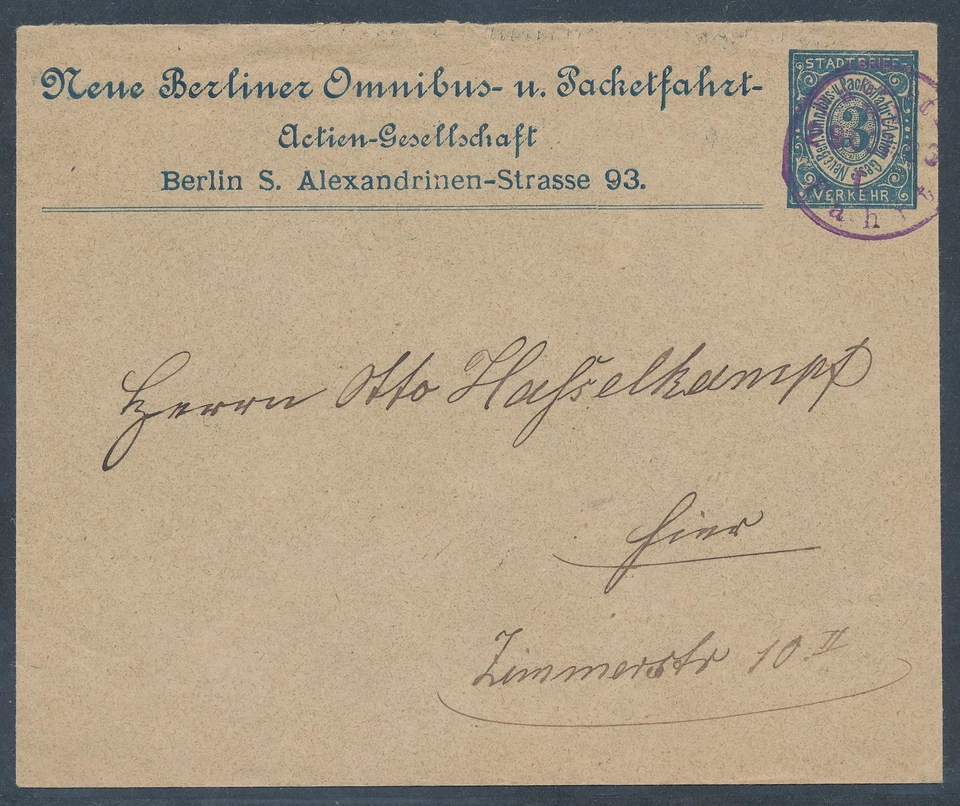 Neue Berliner Omnibus- u. Packetfahrt-
Actien-Gesellschaft
Berlin S. Alexandrinen-Strasse 93.
STADTBRIEF-
Neue Berl. Omnibus-u. Packetfahrt Actien Ges.
3
VERKEHR
Herrn Otto Hasselkampf
hier
Zimmerstr 10 II